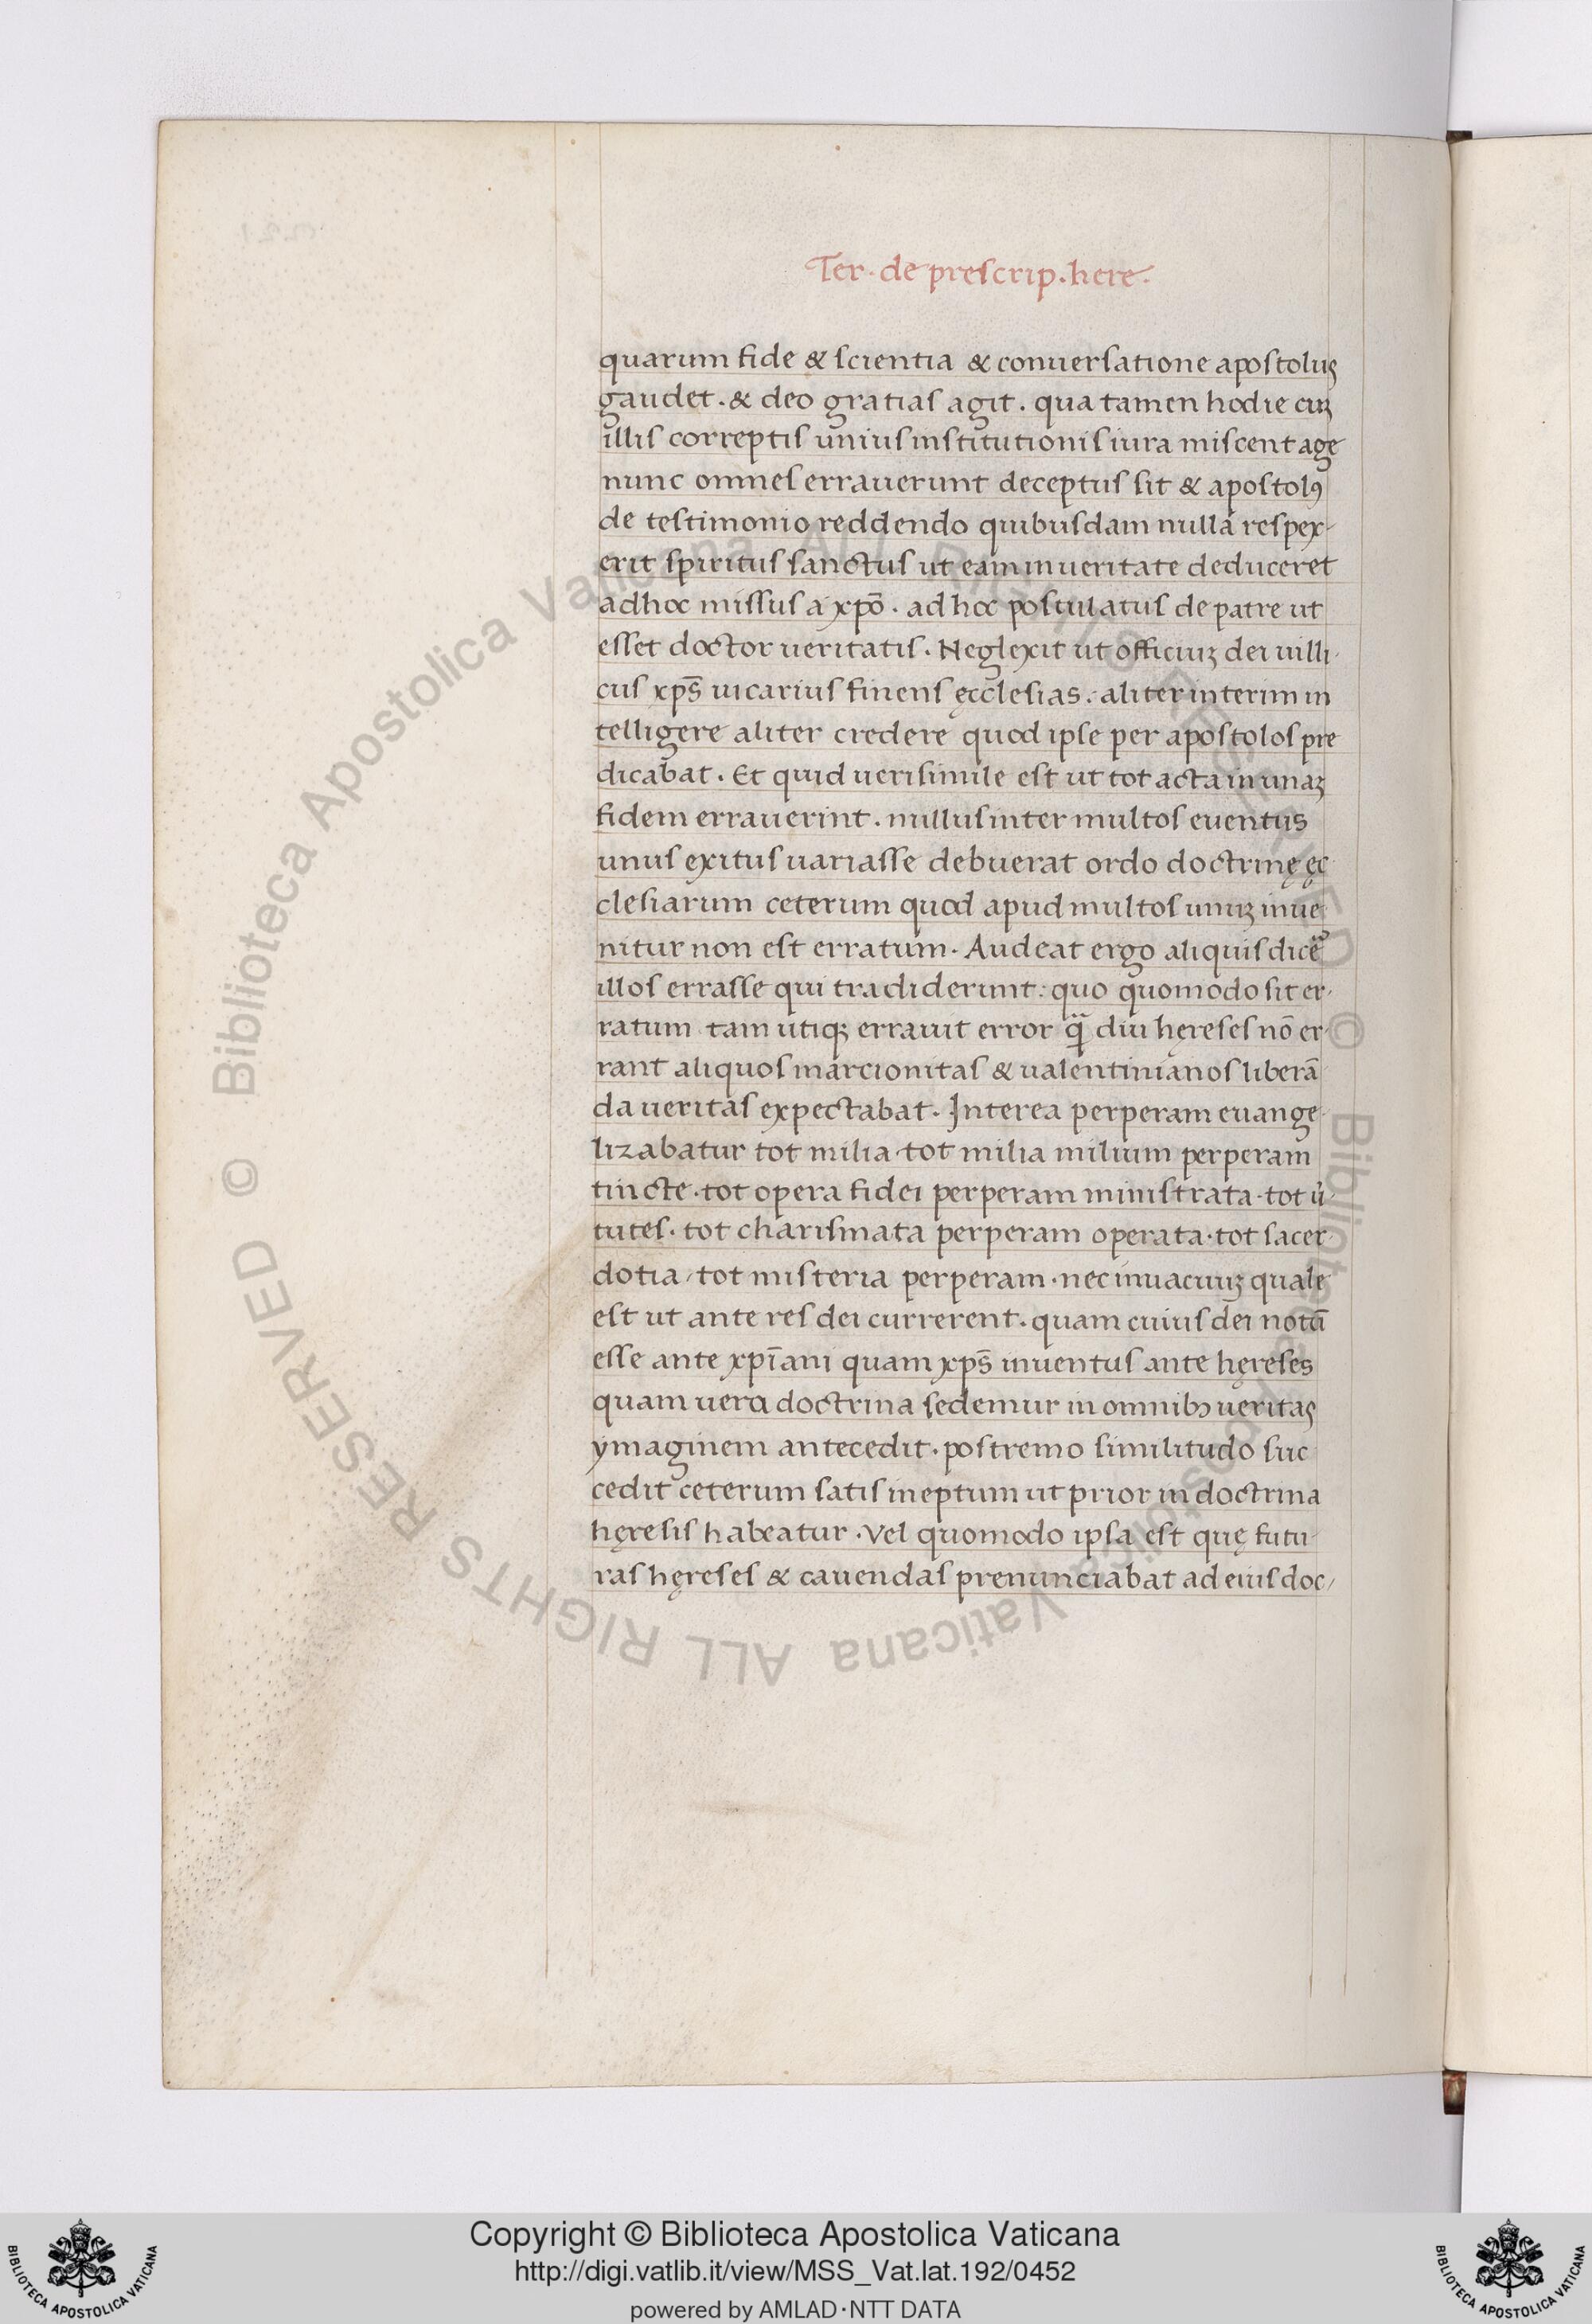 Ter. de prescrip. here.
quarum fide & scientia & conuersatione apostolus
gaudet. & deo gratias agit. qua tamen hodie cuꝫ
illis correptis unius institutionis iura miscent age
nunc omnes errauerunt deceptus sit & apostolꝰ
de testimonio reddendo quibusdam nullā respex-
erit spiritus sanctus ut eam in ueritate deduceret
ad hoc missus a xpō. ad hoc postulatus de patre ut
esset doctor ueritatis. Neglexit ut officiuꝫ dei uilli-
cus xp̄s uicarius finens ęcclesias. aliter interim in
telligere aliter credere quod ipse per apostolos pre
dicabat. Et quid uerisimile est ut tot acta in unaꝫ
fidem errauerint. nullus inter multos euentus
unus exitus uariasse debuerat ordo doctrinę ęc
clesiarum ceterum quod apud multos unuꝫ inue-
nitur non est erratum. Audeat ergo aliquis dicē
illos errasse qui tradiderunt: quo quomodo sit er-
ratum tam utiqꝫ errauit error qᷓ diu hęreses nō er-
rant aliquos marcionitas & ualentinianos liberā
da ueritas expectabat. Interea perperam euange-
lizabatur tot milia·tot milia milium perperam
tincte·tot opera fidei perperam ministrata·tot uͥ-
tutes·tot charismata perperam operata·tot sacer-
dotia,tot misteria perperam·nec inuacuuꝫ quale
est ut ante res dei currerent. quam cuius dei notū
esse ante xpīani quam xp̄s inuentus ante hęreses
quam uera doctrina sedemur in omnibꝫ ueritas
ymaginem antecedit. postremo similitudo suc
cedit ceterum satis ineptum ut prior in doctrina
hęresis habeatur. Vel quomodo ipsa est quę futu-
ras hęreses & cauendas prenunciabat ad eius doc-
© Biblioteca Apostolica Vaticana ALL RIGHTS RESERVED © Biblioteca Apostolica Vaticana ALL RIGHTS RESERVED
Copyright © Biblioteca Apostolica Vaticana
http://digi.vatlib.it/view/MSS_Vat.lat.192/0452
powered by AMLAD·NTT DATA
BIBLIOTECA APOSTOLICA VATICANA
BIBLIOTECA APOSTOLICA VATICANA